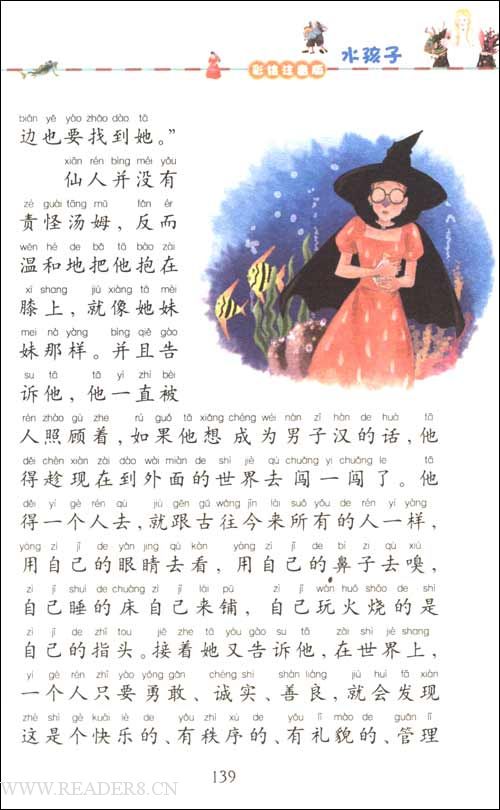 水孩子
彩绘注音版
biān yě yào zhǎo dào tā
边也要找到她。”
xiān rén bìng méi yǒu
仙人并没有
zé guài tāng mǔ fǎn ér
责怪汤姆，反而
wēn hé de bǎ tā bào zài
温和地把他抱在
xī shang jiù xiàng tā mèi
膝上，就像她妹
mei nà yàng bìng qiě gào
妹那样。并且告
su tā tā yì zhí bèi
诉他，他一直被
rén zhào gù zhe rú guǒ tā xiǎng chéng wéi nán zǐ hàn de huà tā
人照顾着，如果他想成为男子汉的话，他
děi chèn xiàn zài dào wài miàn de shì jiè qù chuǎng yi chuǎng le tā
得趁现在到外面的世界去闯一闯了。他
děi yí gè rén qù jiù gēn gǔ wǎng jīn lái suǒ yǒu de rén yí yàng
得一个人去，就跟古往今来所有的人一样，
yòng zì jǐ de yǎn jing qù kàn yòng zì jǐ de bí zi qù xiù
用自己的眼睛去看，用自己的鼻子去嗅，
zì jǐ shuì de chuáng zì jǐ lái pū zì jǐ wán huǒ shāo de shì
自己睡的床自己来铺，自己玩火烧的是
zì jǐ de zhǐ tou jiē zhe tā yòu gào su tā zài shì jiè shang
自己的指头。接着她又告诉他，在世界上，
yí gè rén zhǐ yào yǒng gǎn chéng shí shàn liáng jiù huì fā xiàn
一个人只要勇敢、诚实、善良，就会发现
zhè shì gè kuài lè de yǒu zhì xù de yǒu lǐ mào de guǎn lǐ
这是个快乐的、有秩序的、有礼貌的、管理
139
WWW.READER8.CN